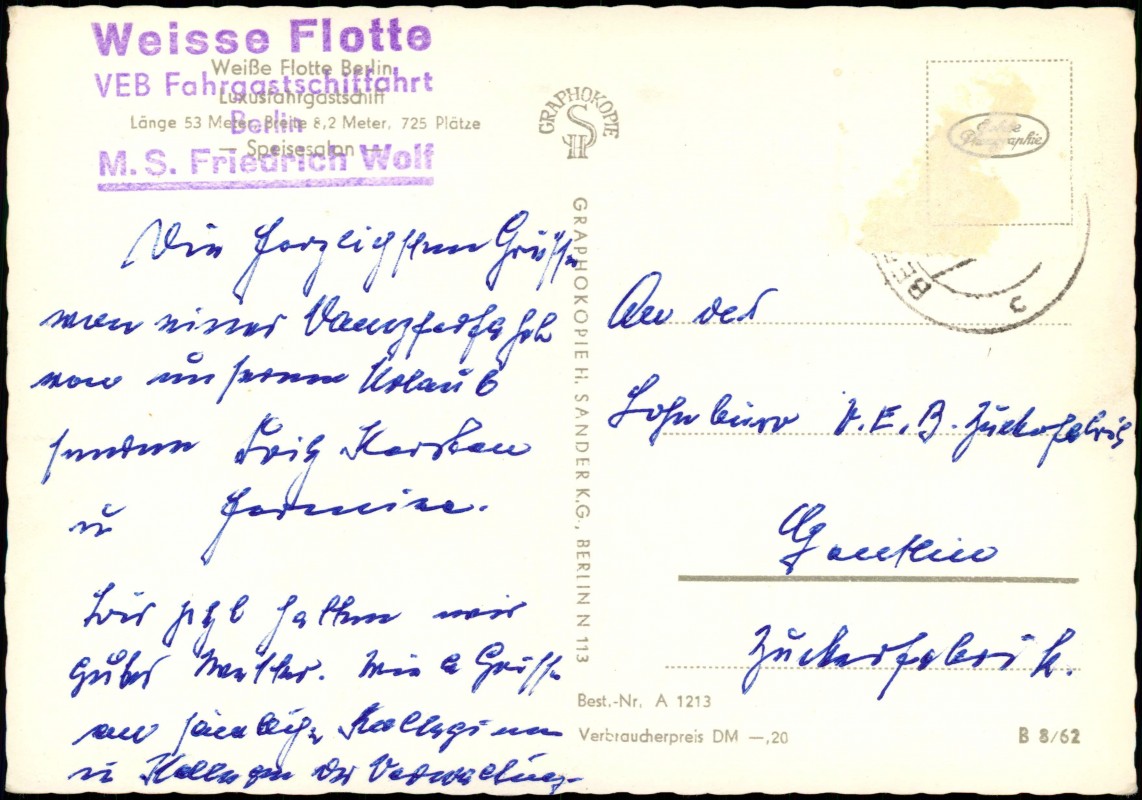 Weisse Flotte
VEB Fahrgastschiffahrt
Berlin
M. S. Friedrich Wolf
Weiße Flotte Berlin
Luxusfahrgastschiff
Länge 53 Meter, Breite 8,2 Meter, 725 Plätze
— Speisesalon —
Die herzlichsten Grüsse
von einer Dampferfahrt
von unserem Urlaub
senden Fritz Karsten
u Hermine.
Bis jetzt hatten wir
gutes Wetter. Viele Grüsse
an sämtliche Kolleginnen
u Kollegen der Verwaltung.
GRAPHOKOPIE
H S
GRAPHOKOPIE H. SANDER K.G., BERLIN N 113
Echte
Photographie
BE
An das
Lohnbüro V.E.B. Zuckerfabrik
Genthin
Zuckerfabrik.
Best.-Nr. A 1213
Verbraucherpreis DM —,20
B 8/62